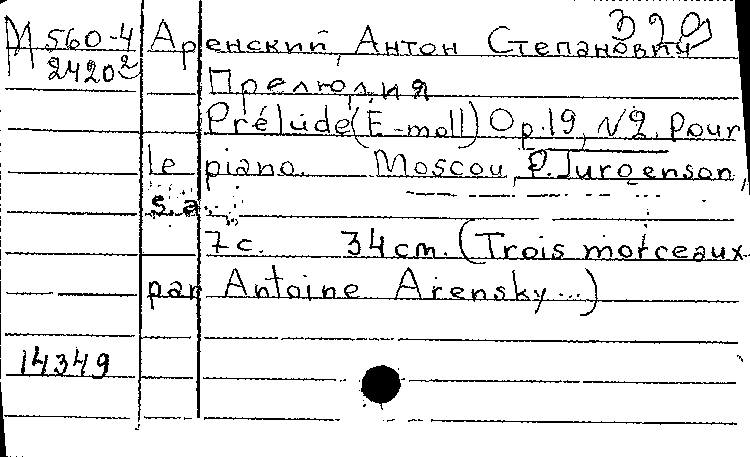 329
М 560-4 Аренский, Антон Степанович
24202
Прелюдия
Prélude (E-moll) Op.19, N2. Pour
le piano. Moscou, P. Jurgenson,
s.a.
7 с. 34 cm. (Trois morceaux
par Antoine Arensky...)
14349